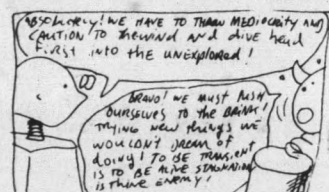 ABSOLUTELY! WE HAVE TO THROW MEDIOCRITY AND
CAUTION TO THE WIND AND dive head
first into the UNEXPLORED!
BRAVO! WE MUST PUSH
OURSELVES TO THE BRINK!
TRYING NEW things WE
WOULDN'T DREAM OF
doing! TO BE TRANSIENT
IS TO BE ALIVE STAGNATION
IS THINE ENEMY!